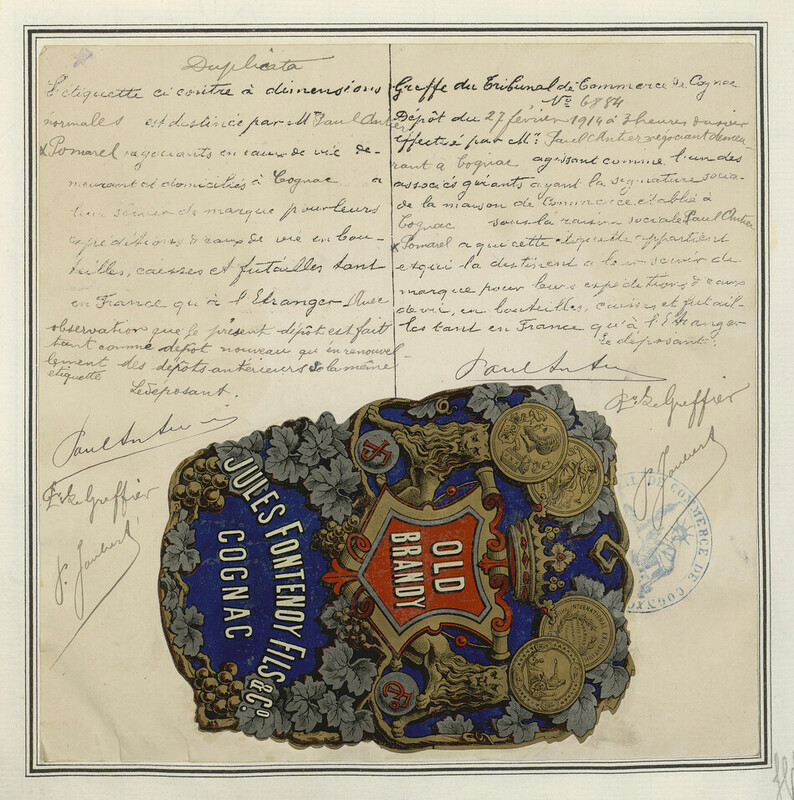 Duplicata
L'étiquette ci contre à dimensions
normales est destinée par M Paul Antier
& Pomarel négociants en eaux de vie de-
meurant et domiciliés à Cognac a
leur servir de marque pour leurs
expéditions d'eaux de vie en bou-
teilles, caisses et futailles tant
en France qu'à l'Etranger Avec
observation que le présent dépôt est fait
tant comme dépôt nouveau qu'en renouvel
lement des dépôts antérieurs de la même
etiquette
Le déposant.
Paul Antier
Le Greffier
J. Joubert
Greffe du Tribunal de Commerce de Cognac
No 6884
Dépôt du 27 février 1914 à 3 heures du soir
effectué par Mr. Paul Antier négociant demeu-
rant à Cognac agissant comme l'un des
associés gérants ayant la signature socia-
de la maison de Commerce établie à
Cognac sous la raison sociale Paul Antier
& Pomarel a qui cette étiquette appartient
et qui la destinent a leur servir de
marque pour leurs expéditions d'eaux
de vie, en bouteilles, caisses et futail-
les tant en France qu'à l'Etranger
Le déposant.
Paul Antier
Le Greffier
J. Joubert
DE COMMERCE DE COGNAC
OLD
BRANDY
JULES FONTENOY FILS & Co.
COGNAC